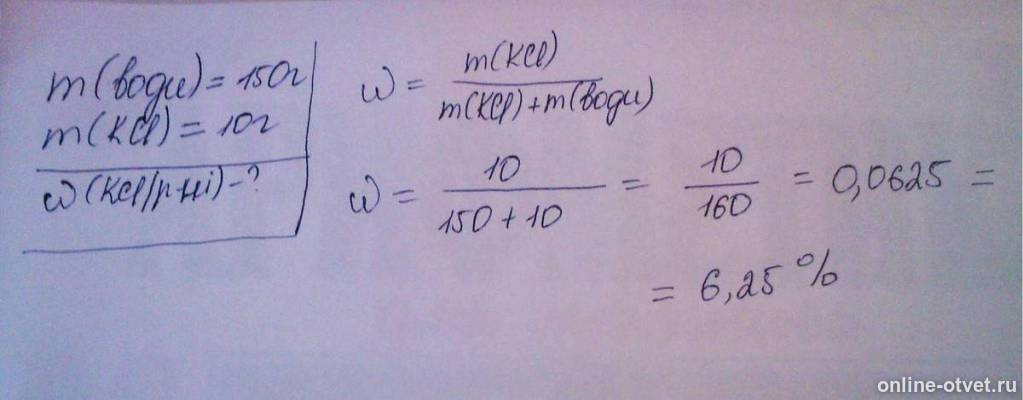 m(води) = 150г
m(KCl) = 10г
ω(KCl/р-ні) - ?
ω = m(KCl) / m(KCl) + m(води)
ω = 10 / 150 + 10 = 10 / 160 = 0,0625 =
= 6,25 %
online-otvet.ru